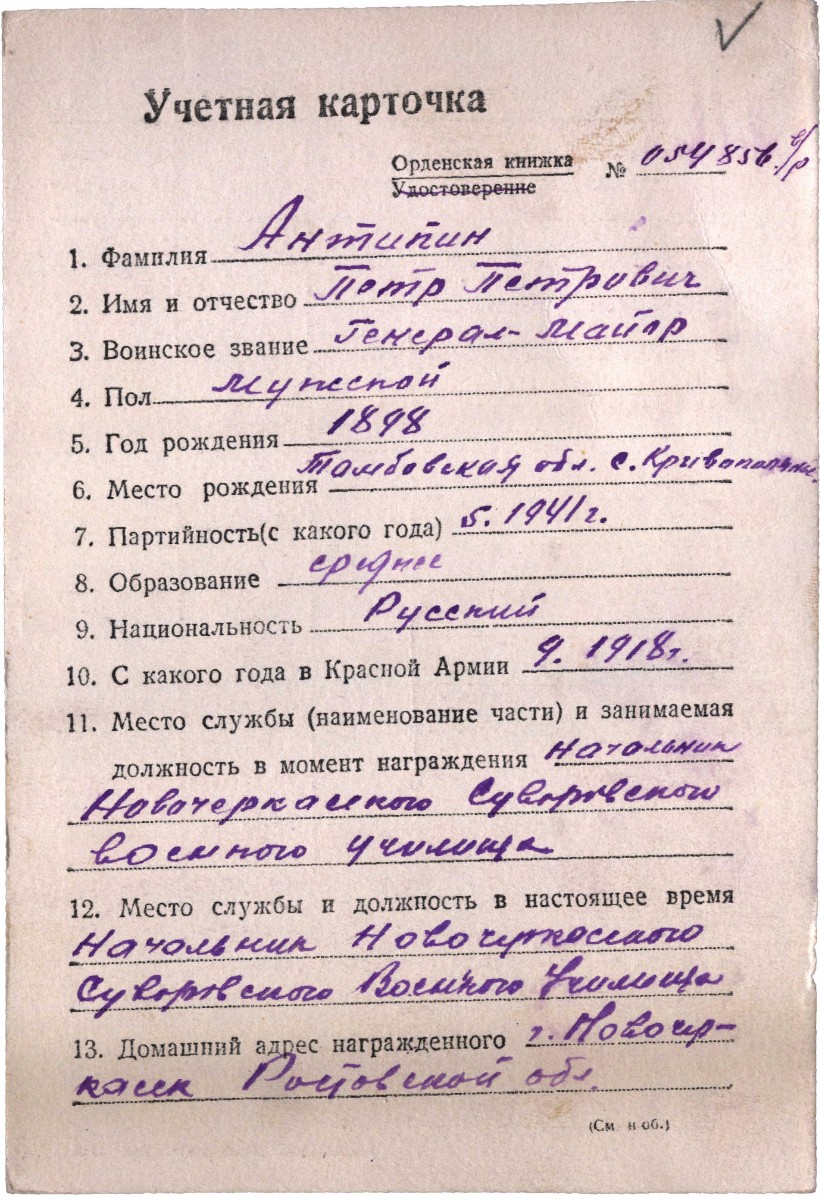 Учетная карточка
Орденская книжка № 054856 б/р
Удостоверение
1. Фамилия Антипин
2. Имя и отчество Петр Петрович
3. Воинское звание Генерал-Майор
4. Пол Мужской
5. Год рождения 1898
6. Место рождения Тамбовская обл. с.
7. Партийность(с какого года) 5. 1941г.
8. Образование среднее
9. Национальность Русский
10. С какого года в Красной Армии 9. 1918г.
11. Место службы (наименование части) и занимаемая
должность в момент награждения Начальник
Новочеркасского Суворовского
военного училища
12. Место службы и должность в настоящее время
Начальник Новочеркасского
Суворовского Военного Училища
13. Домашний адрес награжденного г. Новочер-
касск Ростовской обл.
(См н об.)